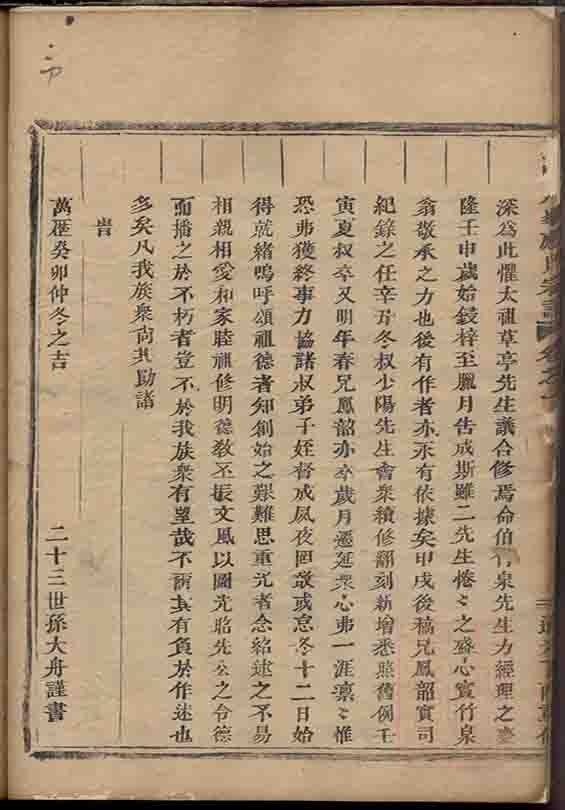 深爲此懼太祖草亭先生議合修焉命伯竹泉先生力經理之
隆壬申歲始鋟梓至臘月告成斯雖二先生惓〻之盛心實竹泉
翁敬承之力也後有作者亦永有依據矣甲戌後稿兄鳳韶實司
紀錄之任辛丑冬叔少陽先生會衆續修翻刻新增悉照舊例壬
寅夏叔卒又明年春兄鳳韶亦卒歲月遷延衆心弗一涯凛〻惟
恐弗獲終事力協諸叔弟子姪督成夙夜罔敢或怠冬十二日始
得就緒嗚呼頌祖德者知創始之艱難思重光者念紹述之不易
相親相愛和家睦祖修明德敎丕振文風以圖光昭先公之令德
而播之於不朽者豈不於我族衆有望哉不爾其有負於作述也
多矣凡我族衆尚其勖諸
旹
萬歷癸卯仲冬之吉
二十三世孫大舟謹書